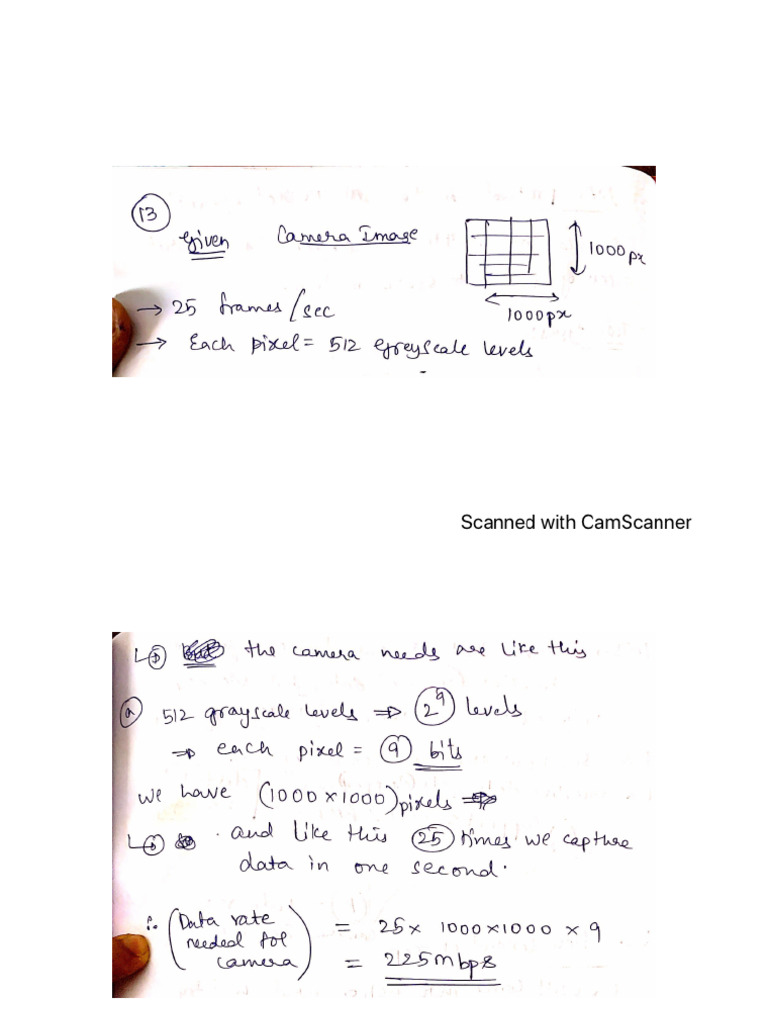 13
Given Camera Image
1000px
1000px
→ 25 frames/sec
→ Each pixel = 512 greyscale levels
Scanned with CamScanner
the camera needs are like this
a 512 grayscale levels ⇒ 2^9 levels
⇒ each pixel = 9 bits
We have (1000×1000) pixels
and like this 25 times we capture
data in one second.
∴ (Data rate needed for camera) = 25 × 1000×1000 × 9
= 225Mbps